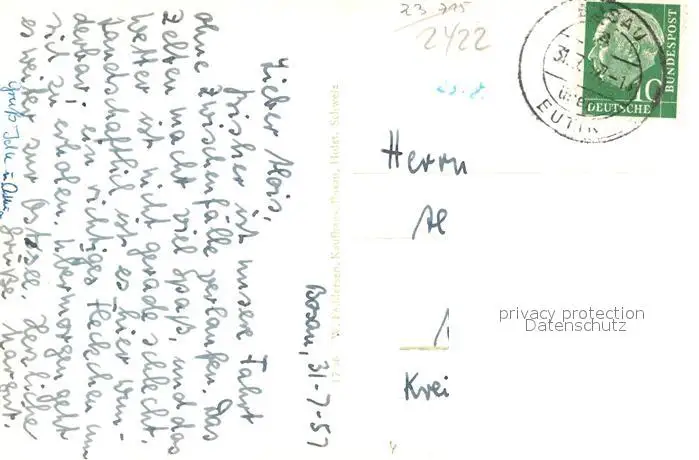 Bosau, 31-7-57
Lieber Alois,
bisher ist unsere Fahrt
ohne Zwischenfälle verlaufen. Das
Zelten macht viel Spaß, und das
Wetter ist nicht gerade schlecht.
Landschaftlich ist es hier wun-
derbar, ein richtiges Fleckchen um
sich zu erholen. Übermorgen geht
es weiter zur Ostsee. Herzliche
Grüße
Gruß
23 715
2422
Herrn
Al
Krei
BOSAU
EUTIN
10
DEUTSCHE
BUNDESPOST
privacy protection
Datenschutz